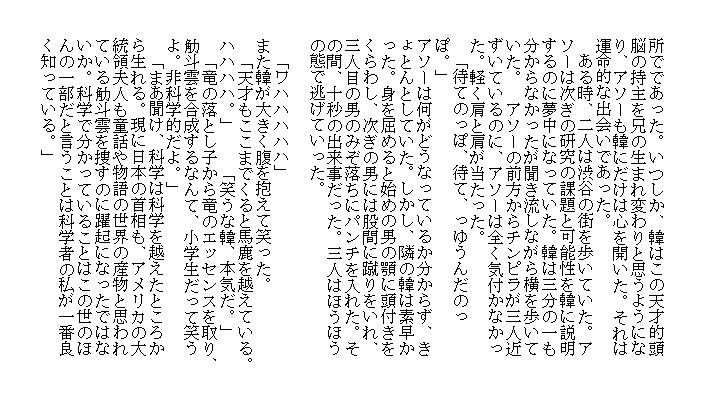 所でであった。いつしか、韓はこの天才的頭
脳の持主を兄の生まれ変わりと思うようにな
り、アソーも韓にだけは心を開いた。それは
運命的な出会いであった。
　ある時、二人は渋谷の街を歩いていた。ア
ソーは次ぎの研究の課題と可能性を韓に説明
するのに夢中になっていた。韓は三分の一も
分からなかったが聞き流しながら横を歩いて
いた。　アソーの前方からチンピラが三人近
ずいているのに、アソーは全く気付かなかっ
た。軽く肩と肩が当たった。
　「待てのっぽ、待て、っゆうんだのっ
ぽ。」
アソーは何がどうなっているか分からず、き
ょとんとしていた。しかし、隣の韓は素早か
った。身を屈めると始めの男の顎に頭付きを
くらわし、次ぎの男には股間に蹴りをいれ、
三人目の男のみぞ落ちにパンチを入れた。そ
の間、十秒の出来事だった。三人はほうほう
の態で逃げていった。
　「ワハハハハハ」
また韓が大きく腹を抱えて笑った。
　「天才もここまでくると馬鹿を越えている。
ハハハハ。」　　「笑うな韓、本気だ。」
　「竜の落とし子から竜のエッセンスを取り、
觔斗雲を合成するなんて、小学生だって笑う
よ。非科学的だよ。」
　「まあ聞け、科学は科学を越えたところか
ら生れる。現に日本の首相も、アメリカの大
統領夫人も童話や物語の世界の産物と思われ
ている觔斗雲を捜すのに躍起になったではな
いか。科学で分かっていることはこの世のほ
んの一部だと言うことは科学者の私が一番良
く知っている。」